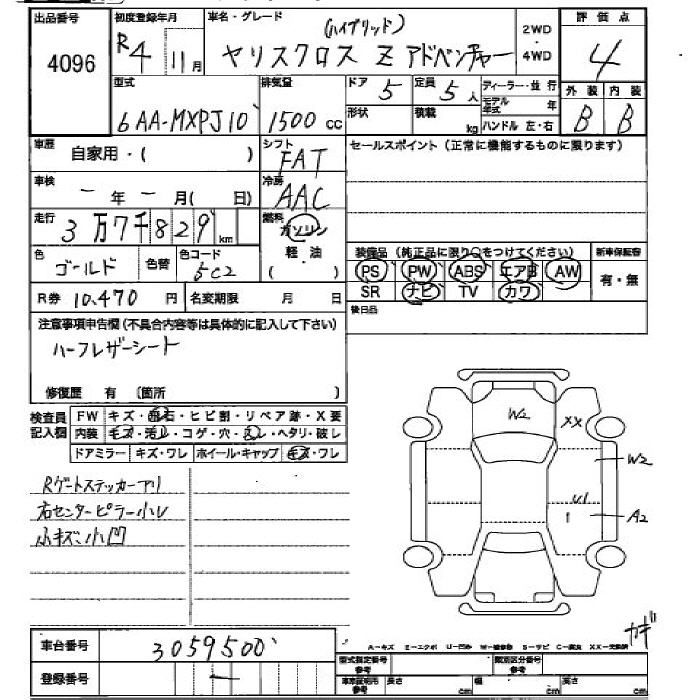 出品番号 初度登録年月 車名・グレード (ハイブリッド) 2WD 評価点
4096 R4 11月 ヤリスクロス Z アドベンチャー 4WD 4
型式 排気量 ドア 5 定員 5人 ディーラー・並行 外装 内装
6AA-MXPJ10 1500cc 形状 積載 kg モデル年式 年 B B
ハンドル 左・右
車歴 自家用・( ) シフト FAT セールスポイント (正常に機能するものに限ります)
車検 一年一月( 日) 冷房 AAC
走行 3万7千829km 燃料 ガソリン
軽・油
( )
色 ゴールド 色替 色コード 5C2 装備品 (純正品に限り○をつけてください) 新車保証書
PS PW ABS エアB AW 有・無
R券 10,470円 名変期限 月 日 SR ナビ TV カワ
注意事項申告欄 (不具合内容等は具体的に記入して下さい) 後日品
ハーフレザーシート
修復歴 有 〔箇所 〕
検査員記入欄 FW キズ・飛石・ヒビ割・リペア跡・X要
内装 キズ・汚レ・コゲ・穴・スレ・ヘタリ・破レ
ドアミラー キズ・ワレ ホイール・キャップ キズ・ワレ
W2 XX
W2
U1
A2
Rゲートステッカーアリ
右センターピラー小U
小キズ、小凹
カギ
車台番号 3059500
A-キズ E-エクボ U-凹み W-補修巻 S-サビ C-腐食 XX-交換済
登録番号 一
型式指定番号 参考 類別区分番号 参考
車庫証明用 参考 長さ cm 幅 cm 高さ cm